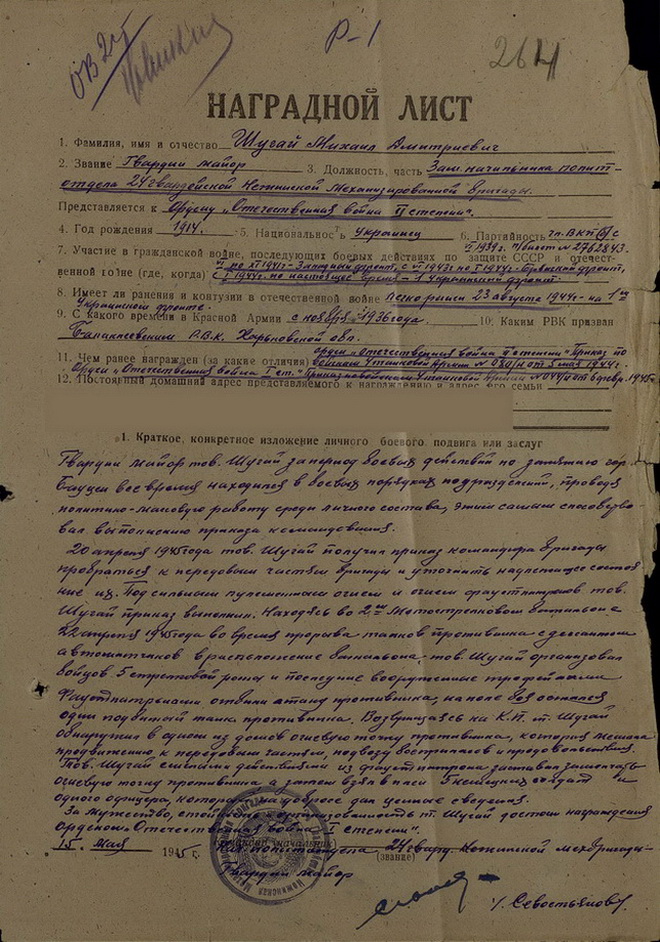 ОВ 2ст
Р-1
264
НАГРАДНОЙ ЛИСТ
1. Фамилия, имя и отчество Шугай Михаил Дмитриевич
2. Звание Гвардии майор 3. Должность, часть Зам. начальника полит-
отдела 24 гвардейской Нежинской Механизированной бригады.
Представляется к Ордену „Отечественная война II степени".
4. Год рождения 1914. 5. Национальность Украинец 6. Партийность чл. ВКП(б) с
1939г. п/билет № 2762843.
7. Участие в гражданской войне, последующих боевых действиях по защите СССР и отечест-
венной войне (где, когда) с VI по XI 1941г- Западный фронт, с VI 1943г по I 1944г- Брянский фронт,
с I 1944г. по настоящее время - 1 Украинский фронт.
8. Имеет ли ранения и контузии в отечественной войне Легко ранен 23 августа 1944г- на 1ом
Украинском фронте.
9. С какого времени в Красной Армии с ноября 1936 года. 10. Каким РВК призван
Балаклеевским Р.В.К. Харьковской обл.
11. Чем ранее награжден (за какие отличия) орден „Отечественная война II степени" Приказ по
войскам 4 танковой Армии № 080/н от 5 мая 1944г.
Орден „Отечественная война I ст." Приказ войскам 4 танковой Армии № 044/н от 6 февр. 1945г
12. Постоянный домашний адрес представляемого к награждению и адрес его семьи
1. Краткое, конкретное изложение личного боевого подвига или заслуг
Гвардии майор тов. Шугай за период боевых действий по занятию гор.
все время находился в боевых порядках подразделений, проводя
политико-массовую работу среди личного состава, этим самым способство-
вал выполнению приказа командования.
20 апреля 1945 года тов. Шугай получил приказ командира бригады
пробраться к передовым частям бригады и уточнить надлежащее состоя-
ние их. Под сильным пулеметным огнем и огнем фаустпатронов тов.
Шугай приказ выполнил. Находясь во 2ом Мотострелковом батальоне
22 апреля 1945 года во время прорыва танков противника с десантом
автоматчиков в расположение батальона, тов. Шугай организовал
бойцов 5 стрелковой роты и последние вооруженные трофейными
Фаустпатронами отбили атаку противника, на поле боя остался
один подбитый танк противника. Возвращаясь на К.П. т. Шугай
обнаружил в одном из домов огневую точку противника, которая мешала
продвижению к передовым частям, подвозу боеприпасов и продовольствия.
Тов. Шугай смелыми действиями из фаустпатрона заставил замолчать
огневую точку противника а затем взял в плен 5 немецких солдат и
одного офицера, который на допросе дал ценные сведения.
За мужество, стойкость и организованность т. Шугай достоин награждения
Орденом „Отечественная война II степени".
15. мая 1945 г. политотдела 24 гвард Нежинской мехбригады-
(звание)
Гвардии майор
/. Севостьянов/.